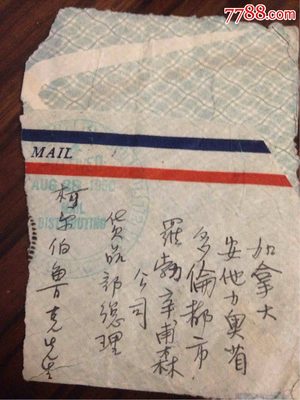 7788.com
MAIL
AUG 28 1990
DISTRIBUTING
加拿大
安他力奥省
多倫都市
羅勃辛甫森
公司
貨品部總理
柯尔伯鲁克先生